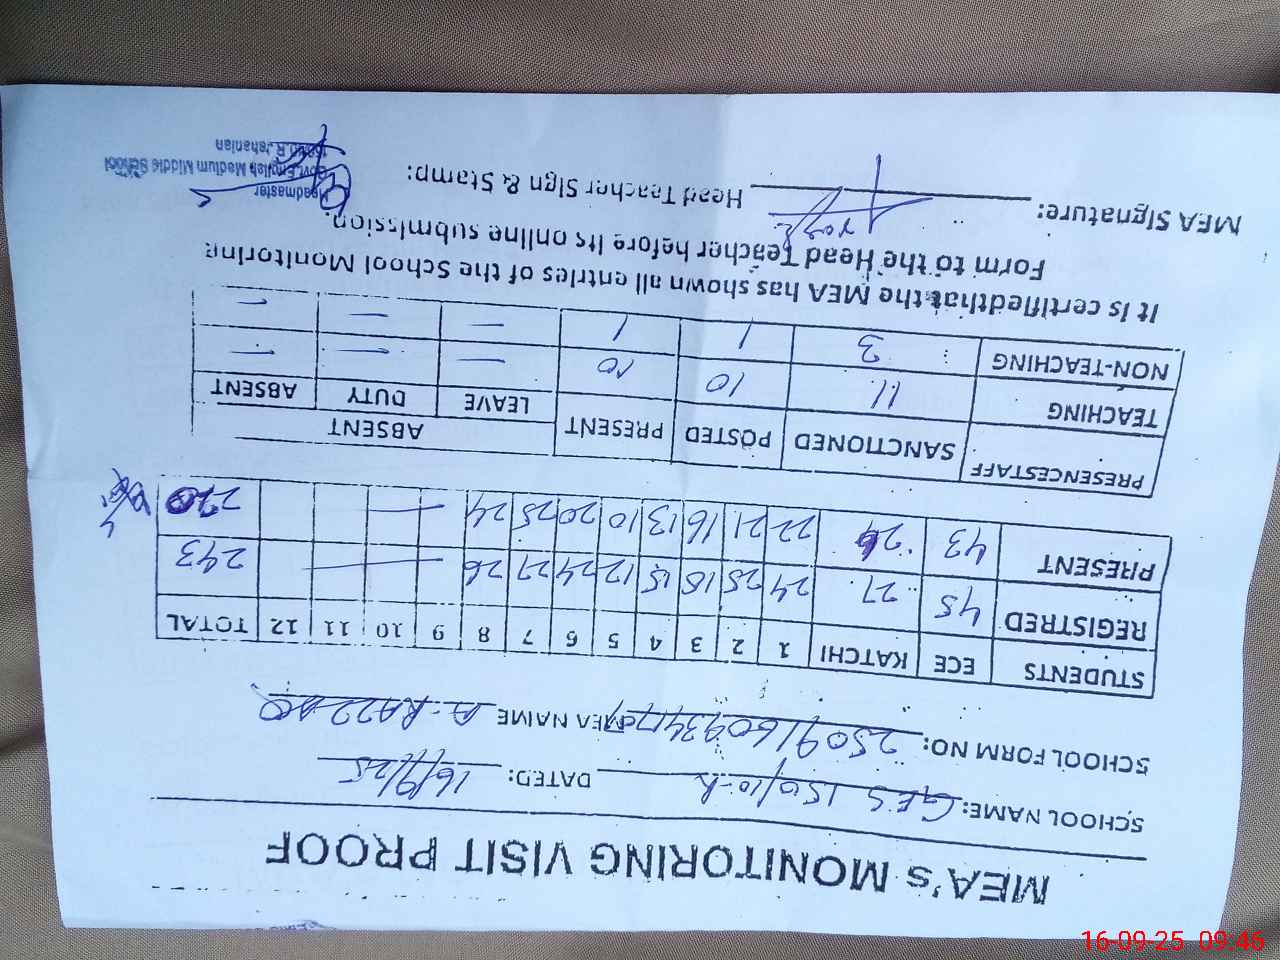 MEA's MONITORING VISIT PROOF
SCHOOL NAME: GES 150/10-R DATED: 16/9/25
SCHOOL FORM NO: MEA NAME A. RAZZAQ
STUDENTS ECE KATCHI 1 2 3 4 5 6 7 8 9 10 11 12 TOTAL
REGISTRED 45 27 24 25 18 15 12 24 27 26 — 243
PRESENT 43 26 22 21 16 13 10 20 25 24 — 220
PRESENCESTAFF SANCTIONED POSTED PRESENT ABSENT
LEAVE DUTY ABSENT
TEACHING 11 10 10 — — —
NON-TEACHING 3 1 1 — — —
It is certifiedthat the MEA has shown all entries of the School Monitoring
Form to the Head Teacher before its online submission.
MEA Signature: Head Teacher Sign & Stamp:
Headmaster
Govt.English Medium Middle School
Jahanian
16-09-25 09:46